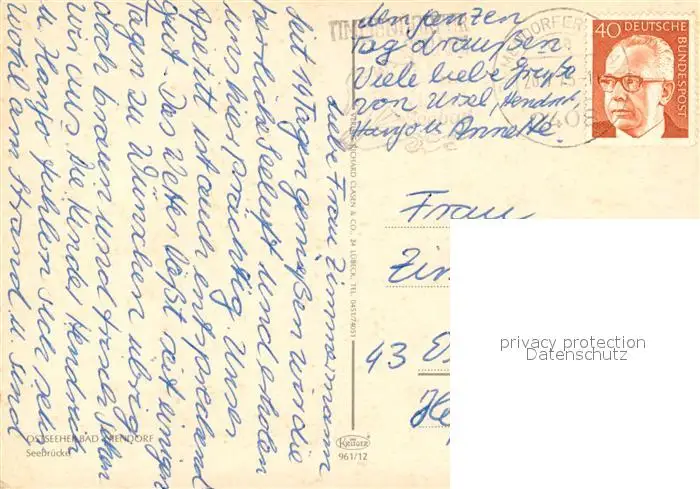 Liebe Frau Zimmermann
Seit 14 Tagen genießen wir die
herrliche Seeluft und erholen
uns hier prächtig. Unser
Appetit ist auch entsprechend
gut. Das Wetter läßt seit einigen
Tagen zu Wünschen übrig,
doch braun und frisch sehen
wir aus. Die Kinder Hendrik
u. Hanjo fühlen sich sehr
wohl am Strand u. sind
den ganzen
Tag draußen
Viele liebe Grüße
von Ursel, Hendrik
Hanjo u. Annette.
TIMMENDORFER
2408
40 DEUTSCHE
BUNDESPOST
Frau
43
VERLAG RICHARD CLASEN & CO., 24 LÜBECK, TEL. 0451/74051
OSTSEEHEILBAD NIENDORF
Seebrücke
Krüger
961/12
privacy protection
Datenschutz